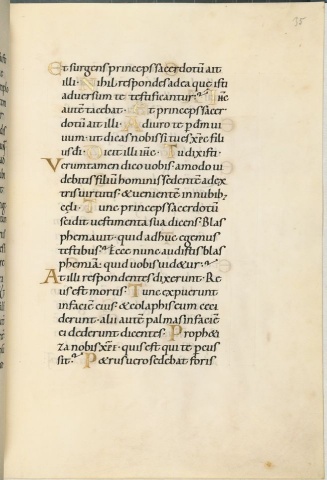 38
Et surgens princeps sacerdotū ait
illi · Nihil respondes ad ea quę isti
adversum te testificantur · ihc
autē tacebat · Et princeps sacer
dotū ait illi · Adiuro te p dm vi
uum · ut dicas nobis si tu es xpc fili
us di · Dicit illi ihc · Tu dixisti ·
Verum tamen dico uobis · amodo ui
debitis filiū hominis sedentē a dex
tris uirtutis · & uenientē in nubib;
cęli · Tunc princeps sacerdotū
scidit uestimenta sua dicens · Blas
phemauit · quid adhuc egemus
testibus · Ecce nunc audistis blas
phemiā · quid uobis uidetur ·
At illi respondentes dixerunt · Re
us est mortis · Tunc expuerunt
in faciē eius · & colaphis eum ceci
derunt · alii autē palmas in faciē
ei dederunt dicentes · Propheti
za nobis xpe · quis est qui te percus
sit · Petrus uero sedebat foris